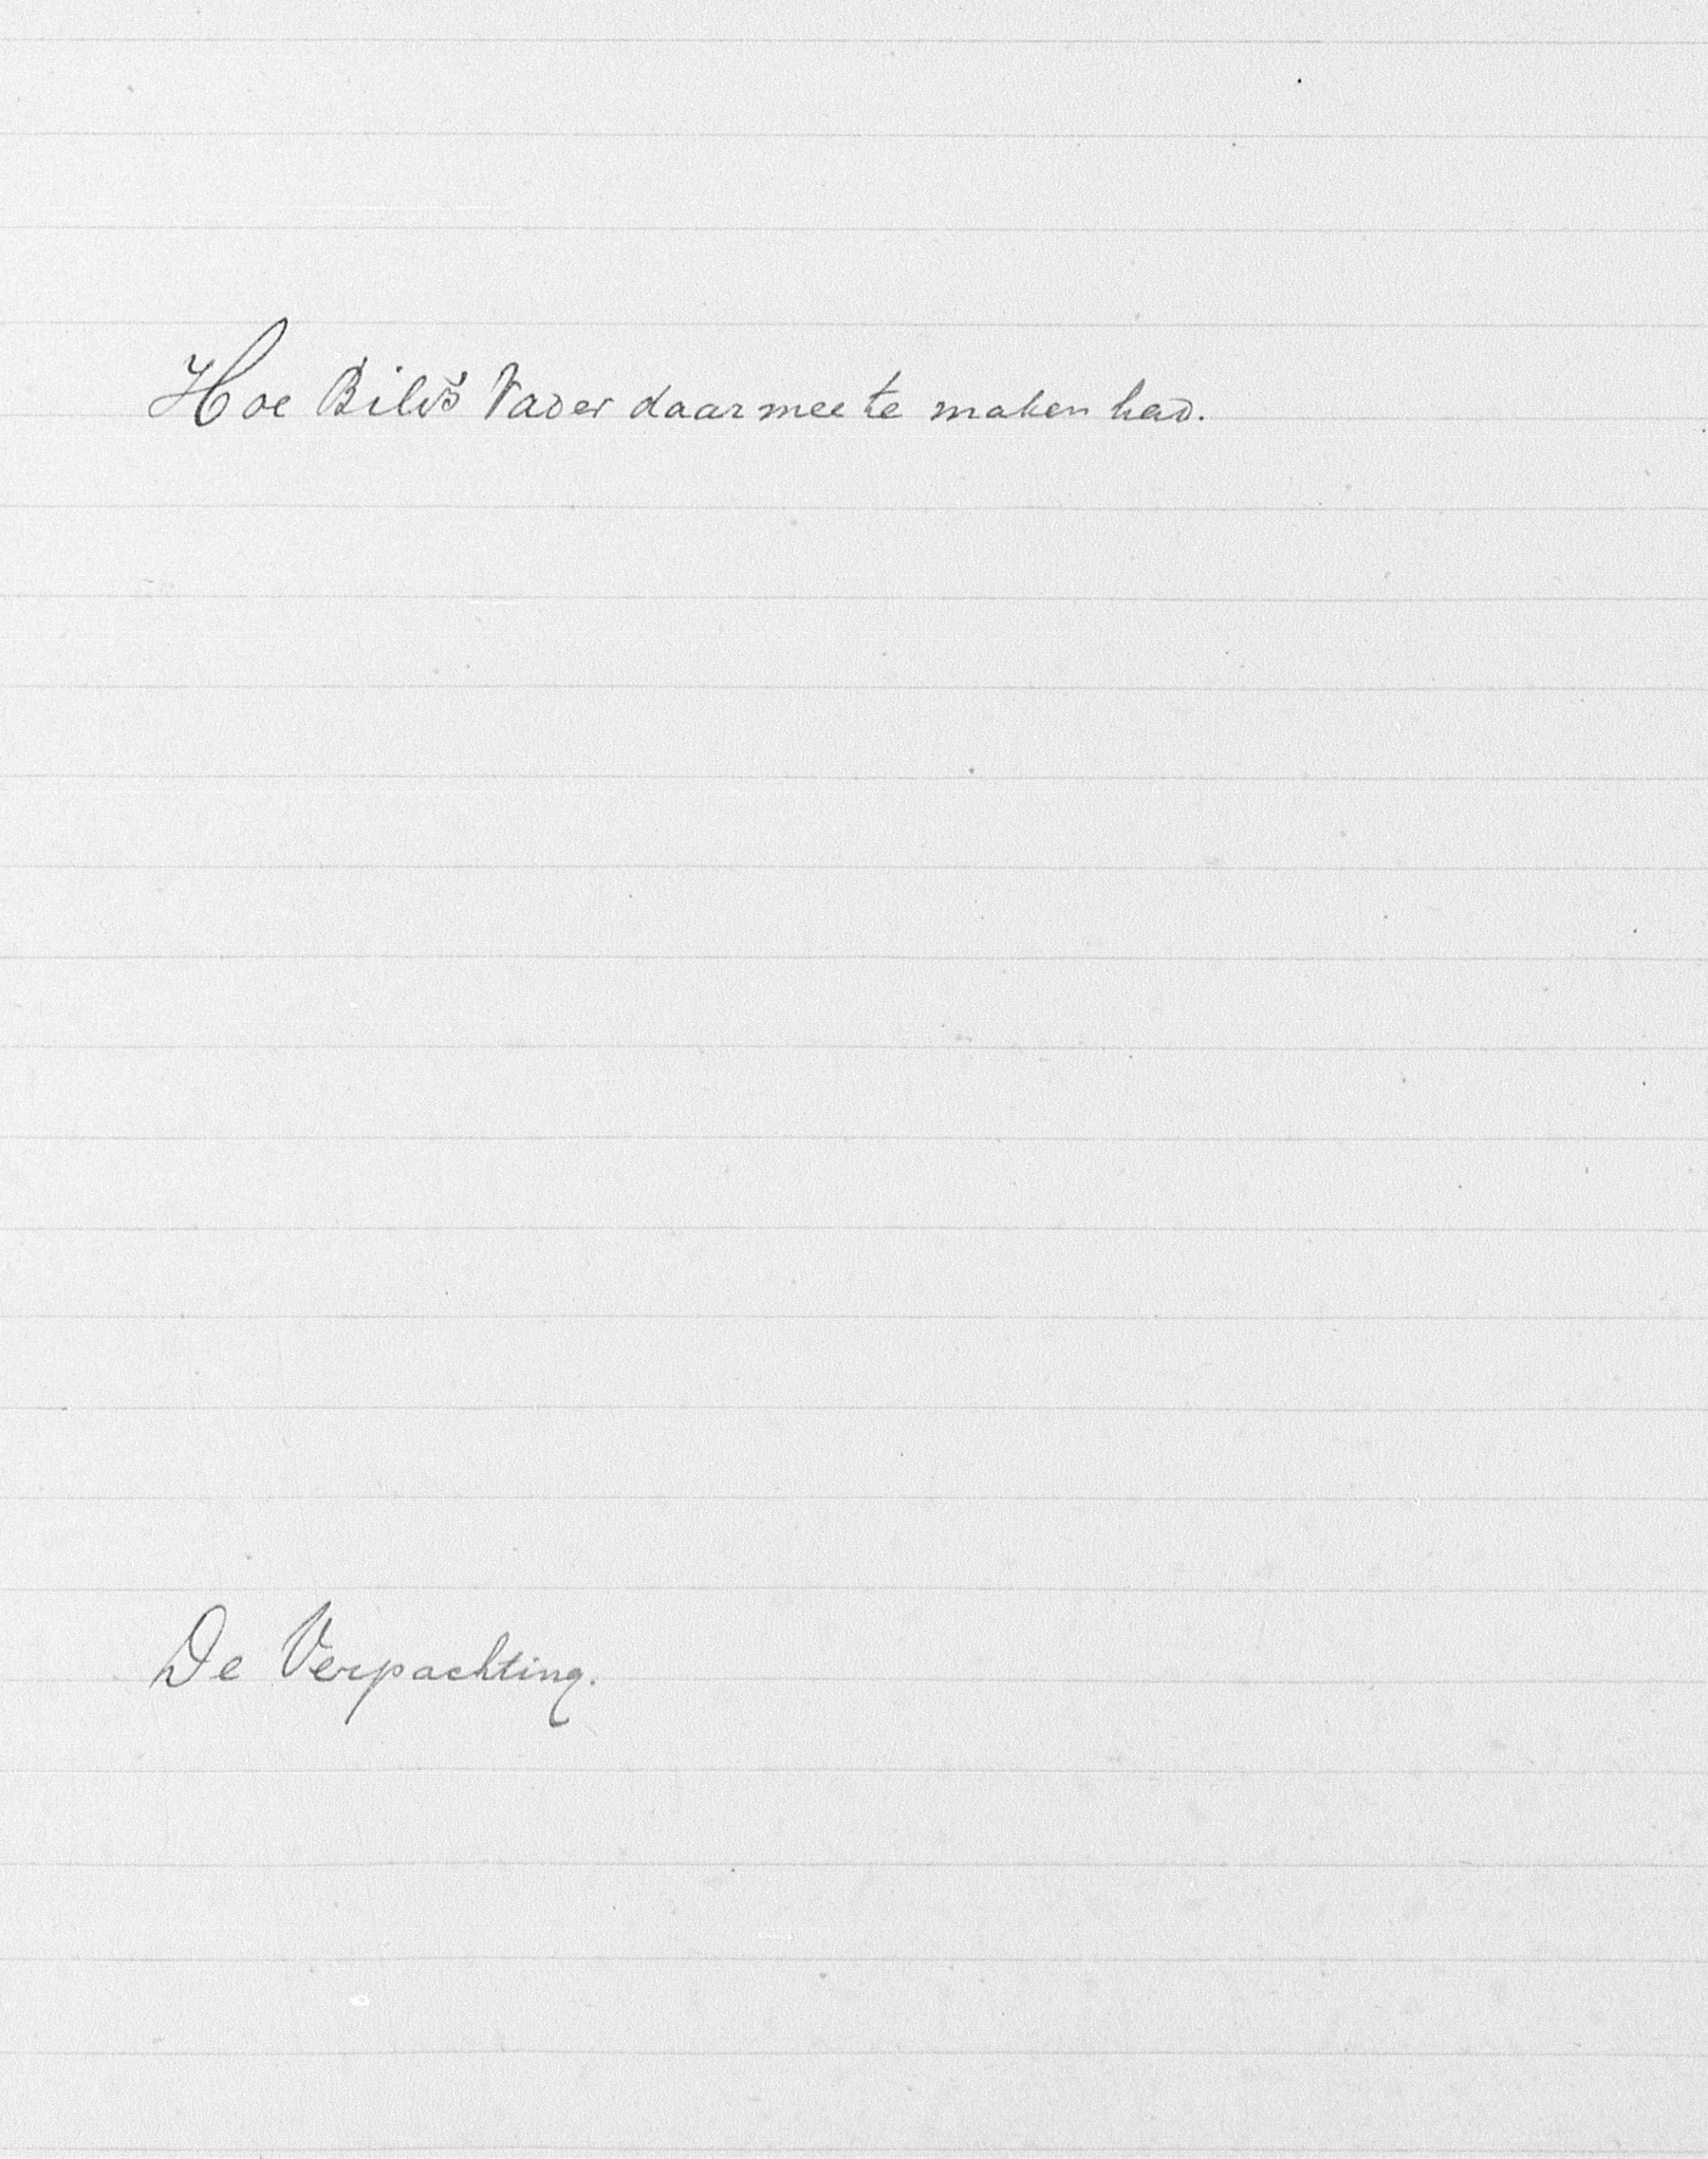 Hoe Bild's Vader daarmee te maken had.
De Verpachting.